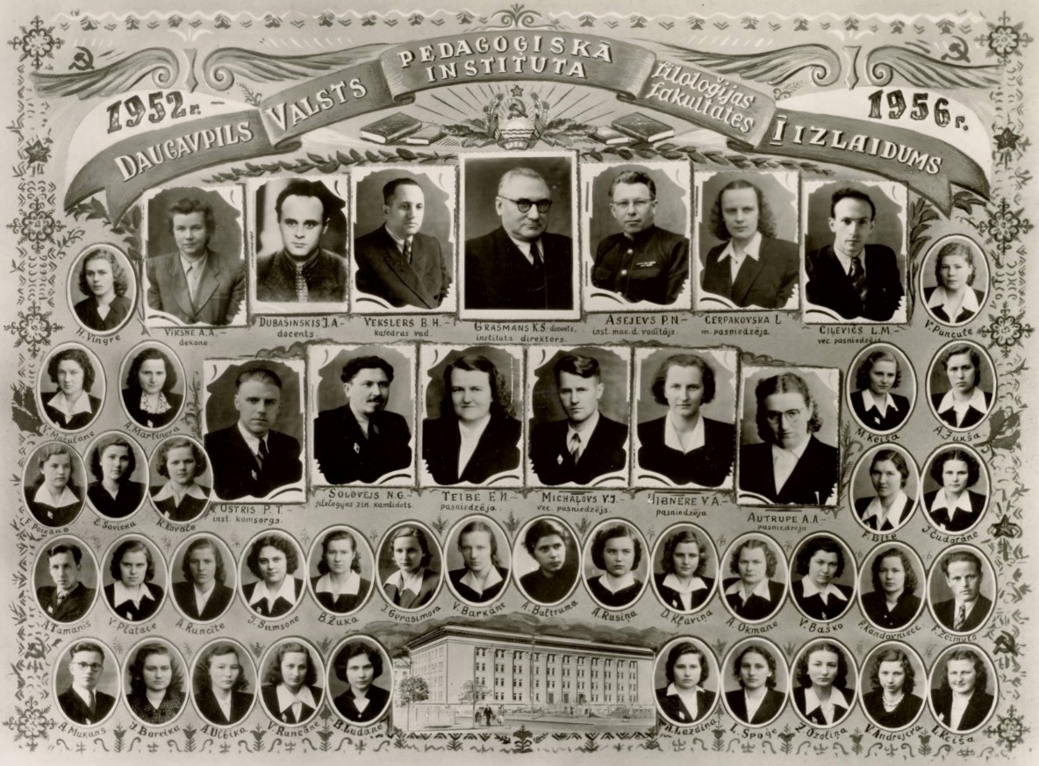 PEDAGOĢISKĀ
INSTITŪTA
1952 г. –
VALSTS
Filoloģijas
Fakultātes
1956 г.
DAUGAVPILS
I IZLAIDUMS
H. Vingre
VĪKSNE A.A. –
dekane.
DUBAŠINSKIS J.A –
docents.
VEKSLERS B.H. –
katedras vad.
GRASMANS K.S – docents,
instituta direktors.
ASEJEVS P.N –
inst. mac. d. vadītājs.
CERPAKOVSKA L
m. pasniedzēja.
CILĒVIČS L.M. –
vec. pasniedzējs.
V. Puncule
V. Mačulāne
A. Martinova
M. Keiša
A. Jukša
OSTRIS P.T.
inst. komsorgs.
SOLOVEJS N.G. –
filoloģijas zin. kandidāts.
TEIBE E.H. –
pasniedzēja.
MICHALOVS V.J. –
vec. pasniedzējs.
ĪBNERE V.A. –
pasniedzēja.
AUTRUPE A.A –
pasniedzēja
E. Savicka
K. Kovale
F. Bite
J. Čudarāne
A. Tamanis
V. Platace
A. Runcite
J. Samsone
B. Žuka
J. Gerasimova
V. Barkāne
A. Baltruma
A. Rusiņa
D. Kļaviņa
A. Okmane
V. Baško
F. Kandavniece
P. Zeimuls
A. Mukāns
J. Bareika
A. Ulbika
V. Runcāne
B. Ludāne
A. Lazdiņa
L. Spoģe
Z. Ozoliņa
V. Andrejeva
L. Keiša